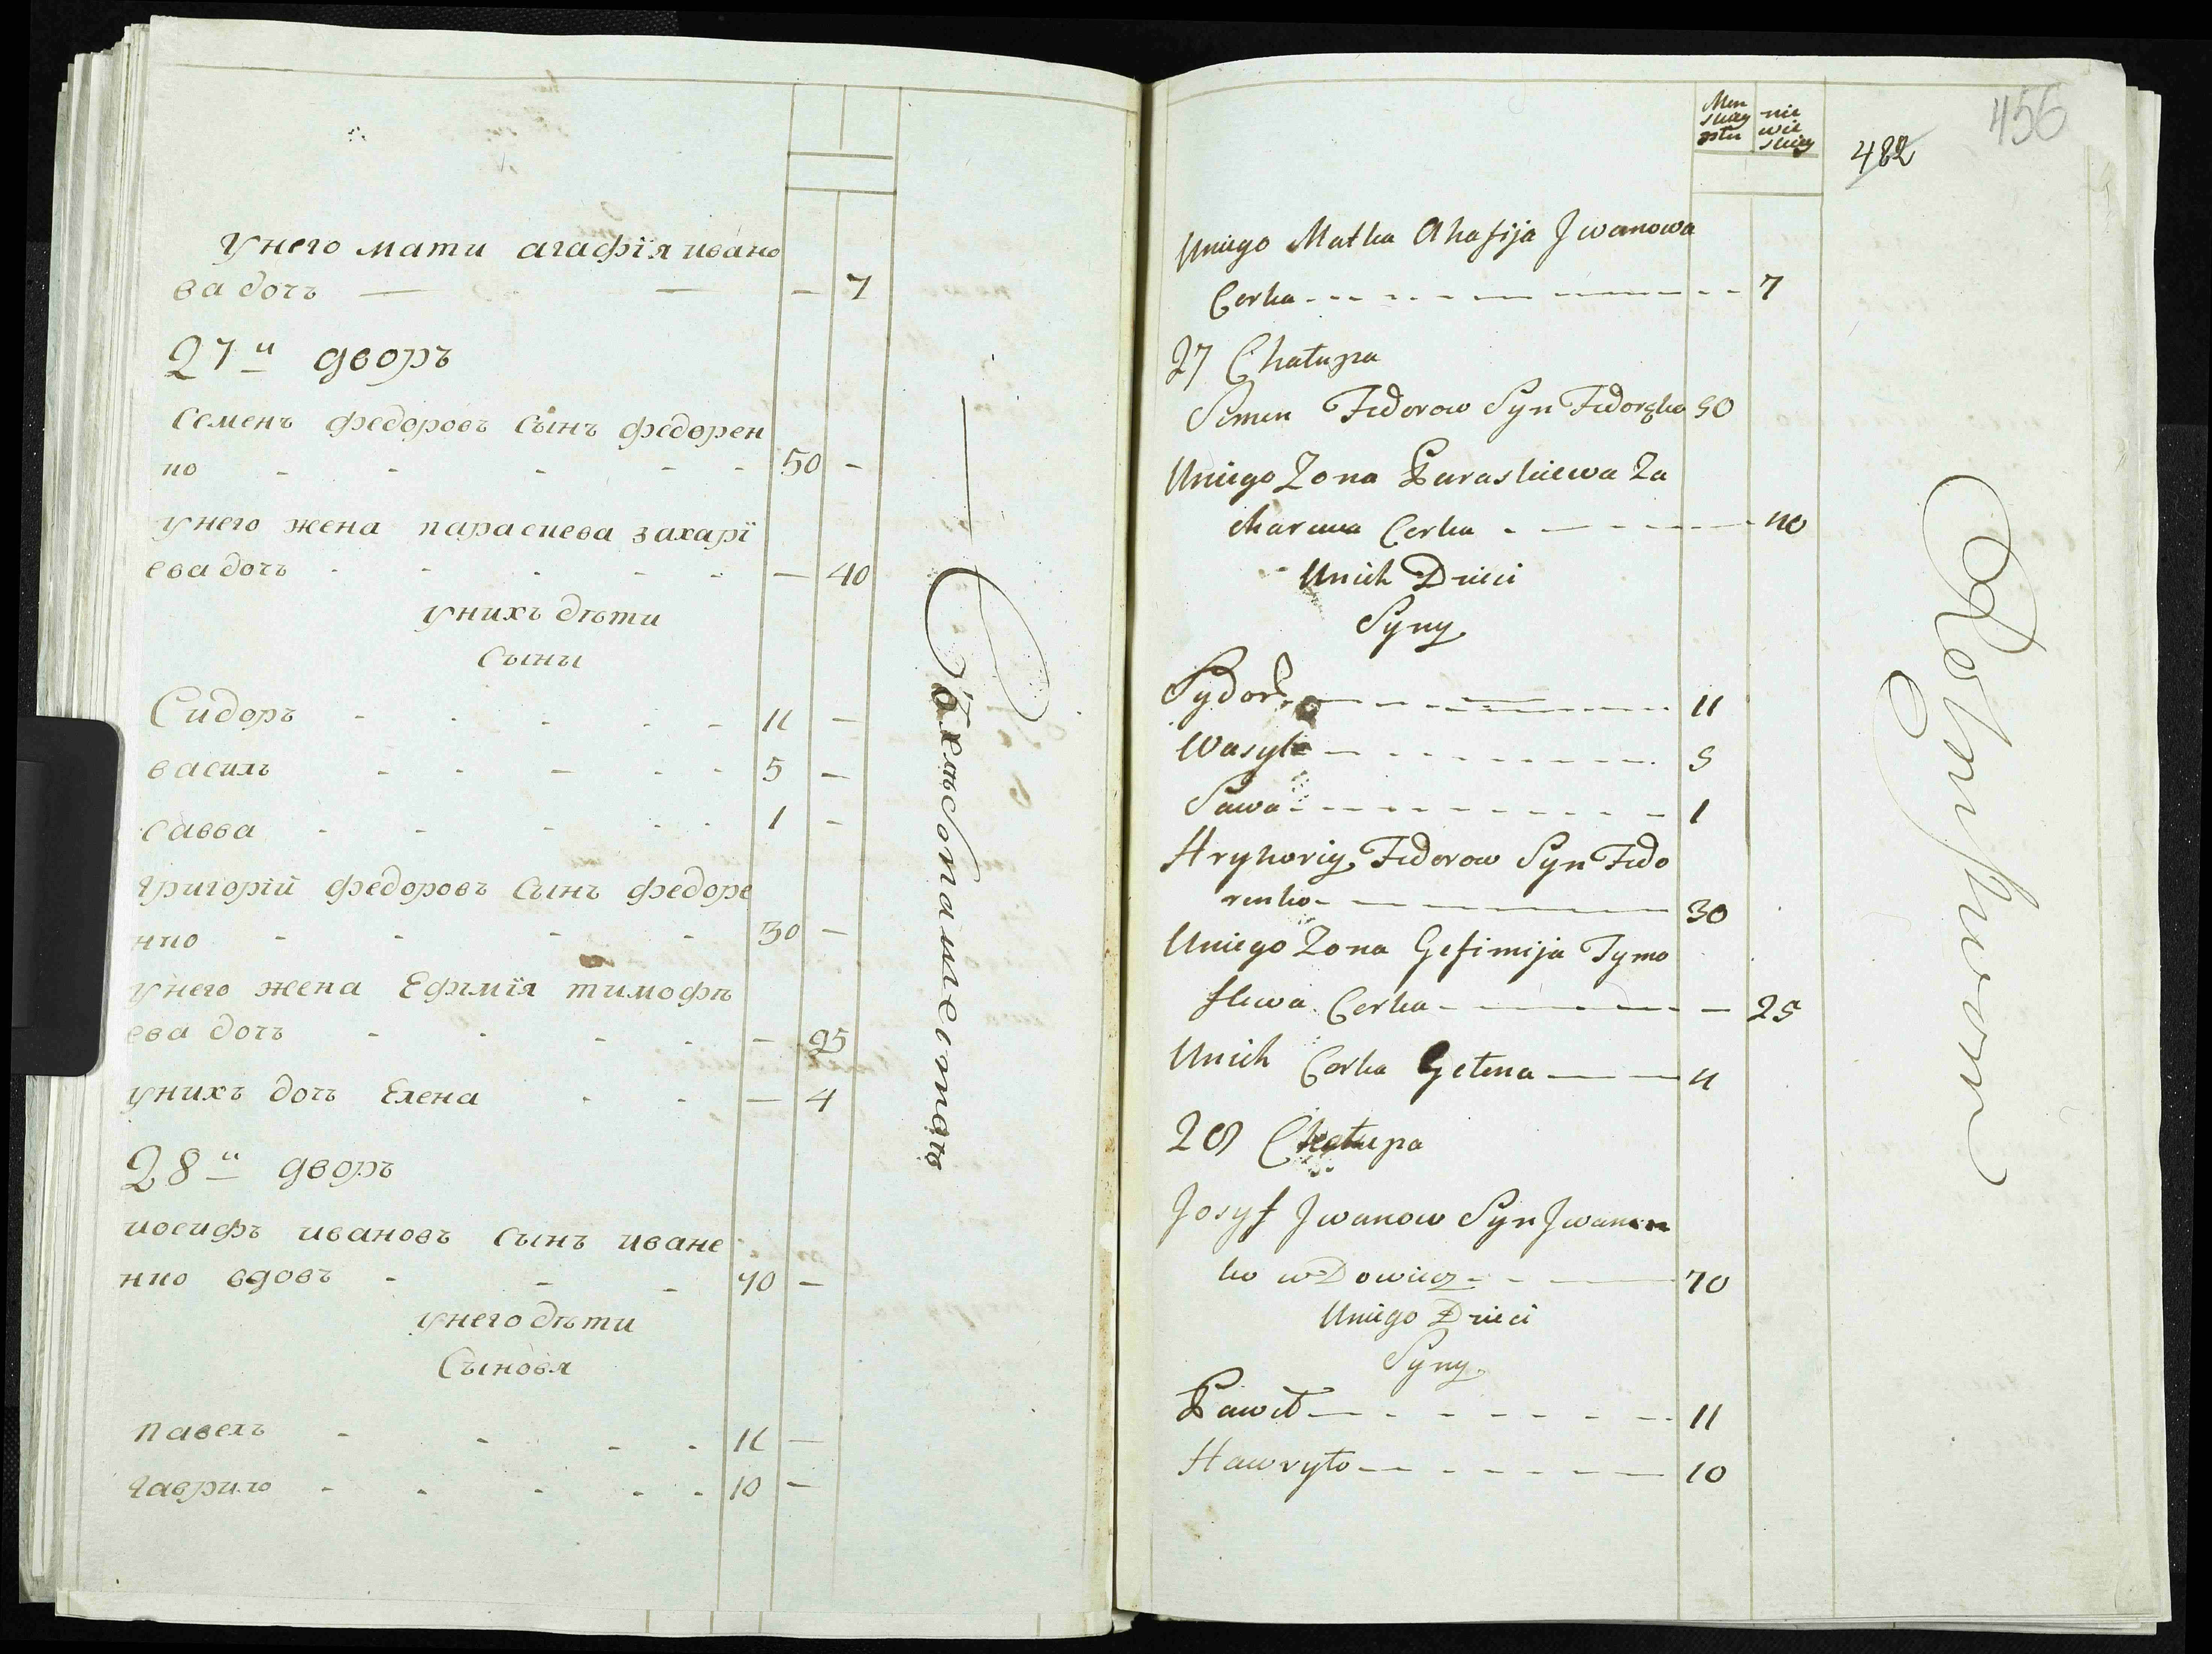 У него мати агафїя ивано
ва дочь — — — 7
27й дворъ
Семенъ федоровъ сынъ федорен
ко - - - - - 50 -
У него жена параскева захарї
ева дочь - - - - - — 40
У нихъ дѣти
Сыны
Сидоръ - - - - - 11 —
василь - - - - - 5 —
савва - - - - - 1 -
григорїй федоровъ сынъ федоре
нко - - - - 30 —
У него жена Ефимїя тимофѣ
ева дочь - - - - — 25
У нихъ дочь Елена - - — 4
28й дворъ
иосифъ ивановъ сынъ иване
нко вдовъ - - - 70 —
У него дѣти
Сыновя
павелъ - - - - 11 —
гаврило - - - - - 10 —
Men
skiey
płci
nie
wie
skiey
482
456
Uniego Matka Ahafija Jwanowa
Corka - - - - - - 7
27 Chałupa
Semen Fedorow Syn Fedoręko 50
Uniego Zona Paraskiewa Za
charewa Corka - - - - 40
Unich Dzieci
Syny
Sydor - - - - - 11
Wasyl - - - - - 5
Sawa - - - - - 1
Hryhoriy Fedorow Syn Fedo
renko - - - - 30
Uniego Zona Gefimija Tymo
fiewa Corka - - - - 25
Unich Corka Gełena — — 4
28 Chałupa
Josyf Jwanow Syn Jwanen
ko wDowiec - - - 70
Uniego Dzieci
Syny
Paweł - - - - - 11
Hawryło - - - - - 10